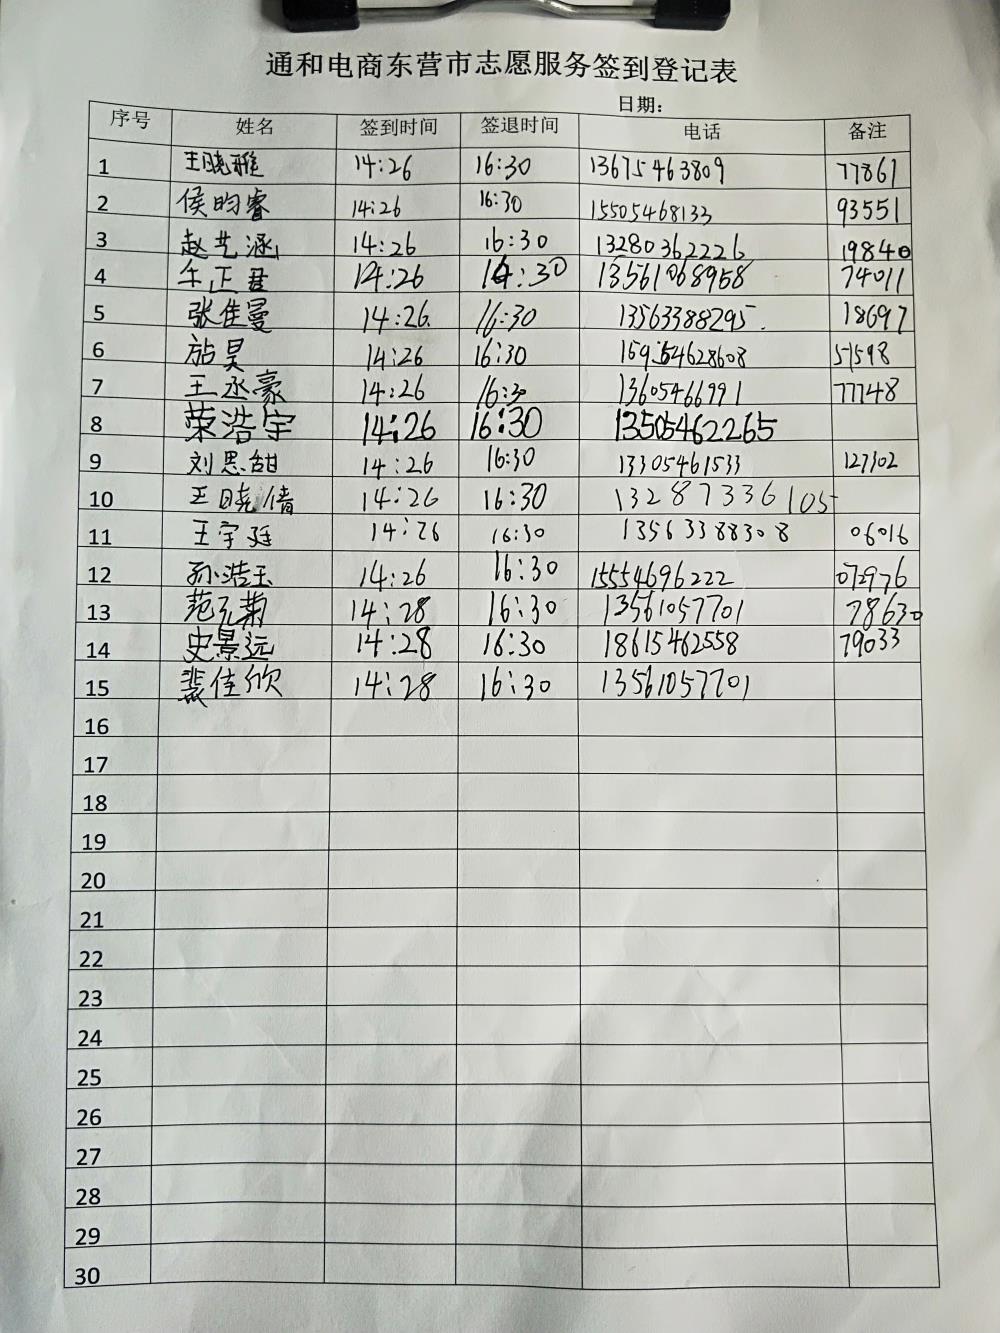 通和电商东营市志愿服务签到登记表
日期：
序号 姓名 签到时间 签退时间 电话 备注
1 王晓雅 14:26 16:30 13675463809 77861
2 侯昀睿 14:26 16:30 15505468133 93551
3 赵艺涵 14:26 16:30 13280362226 19840
4 正君 14:26 16:30 13561068958 74011
5 张佳曼 14:26 16:30 13563388295 18697
6 昊 14:26 16:30 15954628608 51598
7 王丞豪 14:26 16:30 13605466991 77748
8 荣浩宇 14:26 16:30 13505462265
9 刘思甜 14:26 16:30 13305461533 127302
10 王晓倩 14:26 16:30 13287336105
11 王宇廷 14:26 16:30 13563388308 06016
12 孙浩玉 14:26 16:30 15554696222 072976
13 范元菊 14:28 16:30 13561057701 78630
14 史景远 14:28 16:30 18615462558 79033
15 裴佳欣 14:28 16:30 13561057701
16
17
18
19
20
21
22
23
24
25
26
27
28
29
30